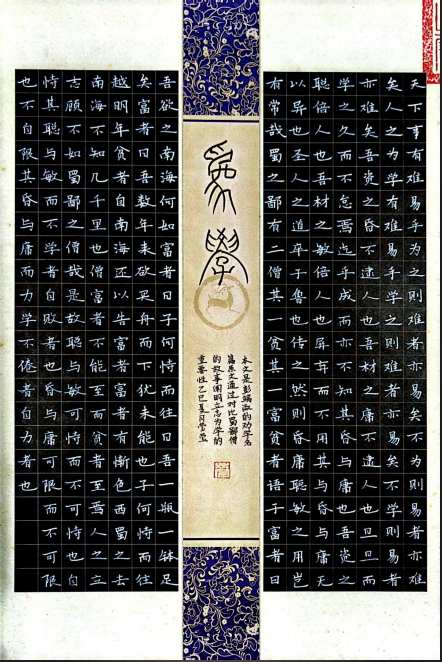 天下事有难易乎为之则难者亦易矣不为则易者亦难
矣人之为学有难易乎学之则难者亦易矣不学则易者
亦难矣吾资之昏不逮人也吾材之庸不逮人也旦旦而
学之久而不怠焉迄乎成而亦不知其昏与庸也吾资之
聪倍人也吾材之敏倍人也屏弃而不用其与昏与庸无
以异也圣人之道卒于鲁也传之然则昏庸聪敏之用岂
有常哉蜀之鄙有二僧其一贫其一富贫者语于富者曰
為學
本文是彭端淑的劝学名
篇原文通过对比蜀鄙僧
的故事阐明立志为学的
重要性乙巳夏月莹莹
吾欲之南海何如富者曰子何恃而往曰吾一瓶一钵足
矣富者曰吾数年来欲买舟而下犹未能也子何恃而往
越明年贫者自南海还以告富者富者有惭色西蜀之去
南海不知几千里也僧富者不能至而贫者至焉人之立
志顾不如蜀鄙之僧哉是故聪与敏可恃而不可恃也自
恃其聪与敏而不学者自败者也昏与庸可限而不可限
也不自限其昏与庸而力学不倦者自力者也